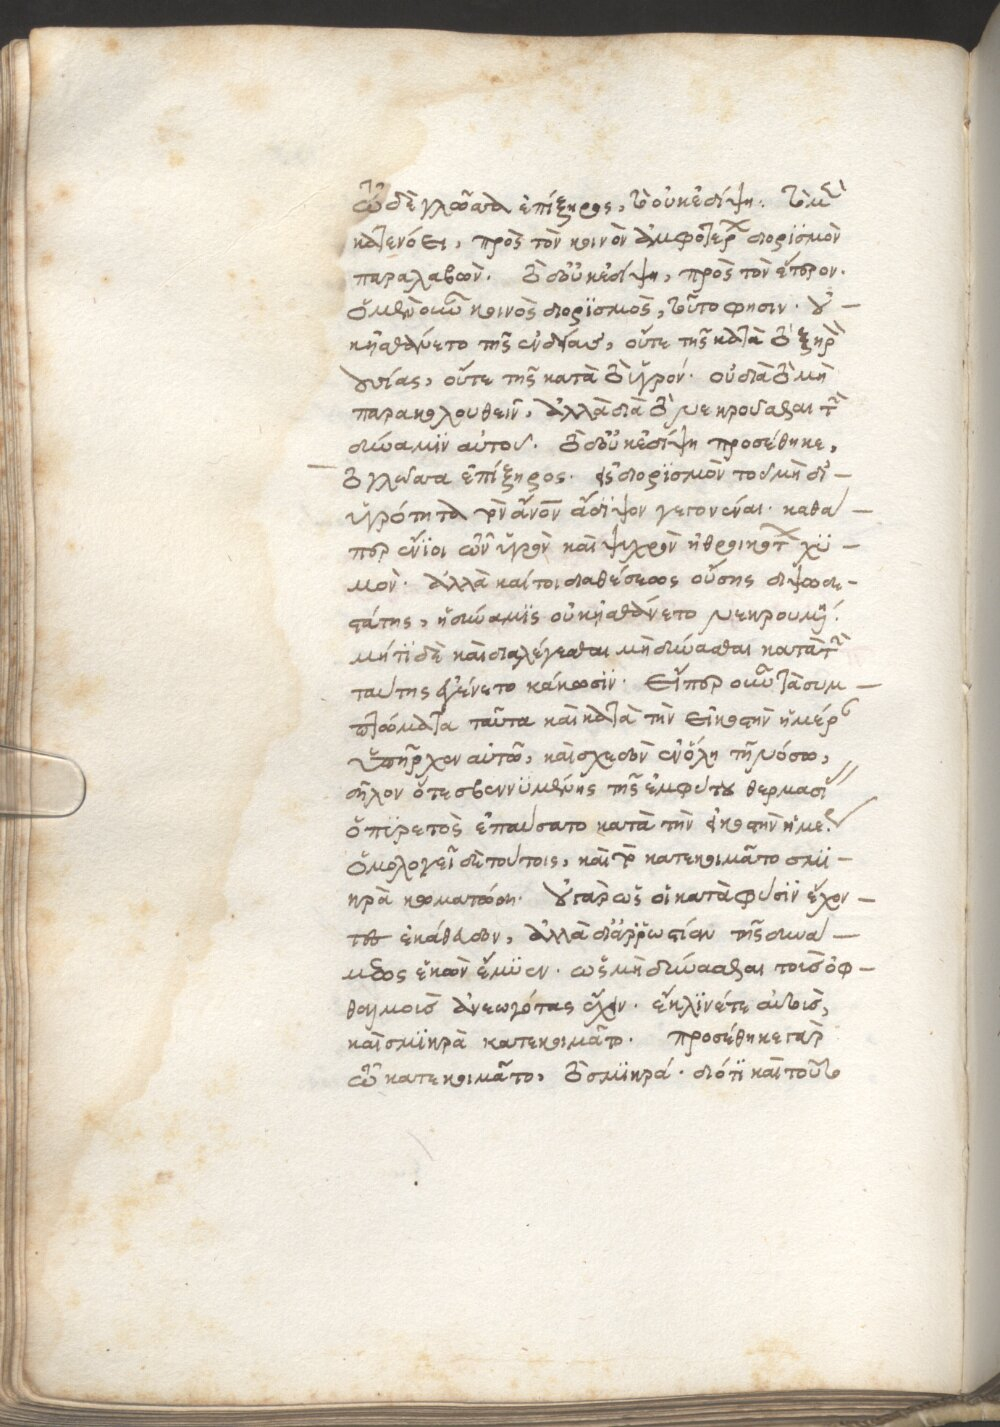 τῶ δὲ γλῶττα ἐπίξηρος, τὸ οὐκ ἐδίψη. τὸ μὲν
κατενόει, πρὸς τὸν κοινὸν ἀμφοτέρων διορισμὸν
παραλαβών. τὸ δ' οὐκ ἐδίψη, πρὸς τὸν ἕτερον.
ὁ μὲν οὖν κοινὸς διορϊσμὸς, τοῦτο φησιν. οὐ
κ ἠσθάνετο τῆς ἐνδείας, οὔτε τῆς κατὰ τὸ ξηρὸν
οὐσίας, οὔτε τῆς κατὰ τὸ ὑγρόν. οὐ διὰ τὸ μὴ
παρακολουθεῖν, ἀλλὰ διὰ τὸ νεκροῦσθαι τὴν
δύναμϊν αὐτοῦ. τὸ δ' οὐκ ἐδίψη προσέθηκε,
τὸ γλῶττα ἐπίξηρος. εἰς διορϊσμὸν τοῦ μὴ δι'
ὑγρότητα τὸν ἄνθρωπον ἄδιψον γεγονέναι. καθά
περ ἔνϊοι τῶν ὑγρὸν καὶ ψυχρὸν ἠθροικότων χϋ
μόν. ἀλλὰ καίτοι διαθέσεως οὔσης διψωδε
στάτης, ἡ δύναμϊς οὐκ ᾐσθάνετο νεκρουμένη.
μήτϊ δὲ καὶ διαλέγεσθαι μὴ δύνασθαι κατὰ τὴν
ταύτης ἐγένετο κάκωσϊν. Εἴπερ οὖν τὰ συμ
πτώματα ταῦτα καὶ κατὰ τὴν εἰκοστὴν ἡμέραν
ὑπῆρχεν αὐτῶ, καὶ σχεδὸν ἐν ὅλη τῆ νόσω,
δῆλον ὅτι σβεννϋμένης τῆς ἐμφύτου θερμασίας
ὁ πϋρετὸς ἐπαύσατο κατὰ τὴν εἰκοστὴν ἡμέραν
ὁμολογεῖ δὲ τούτοις, καὶ τὸ κατεκοιμᾶτο σμϊ
κρὰ κωματώδη. οὐ γὰρ ὡς οἱ κατὰ φύσϊν ἔχον
τες ἐκάθευδον, ἀλλὰ δι' ἀρρωστίαν τῆς δυνά
μεως ἑκὼν ἔμϋεν. ὡς μὴ δύνασθαι τοὺς ὀφ
θαλμοὺς ἀνεῳγότας ἔχειν. ἔκλϊνέ τε αὐτοὺς,
καὶ σμϊκρὰ κατεκοιμᾶτο. προσέθηκε γὰρ
τῶ κατεκοιμᾶτο, τὸ σμϊκρά. διότϊ καὶ τοῦτο